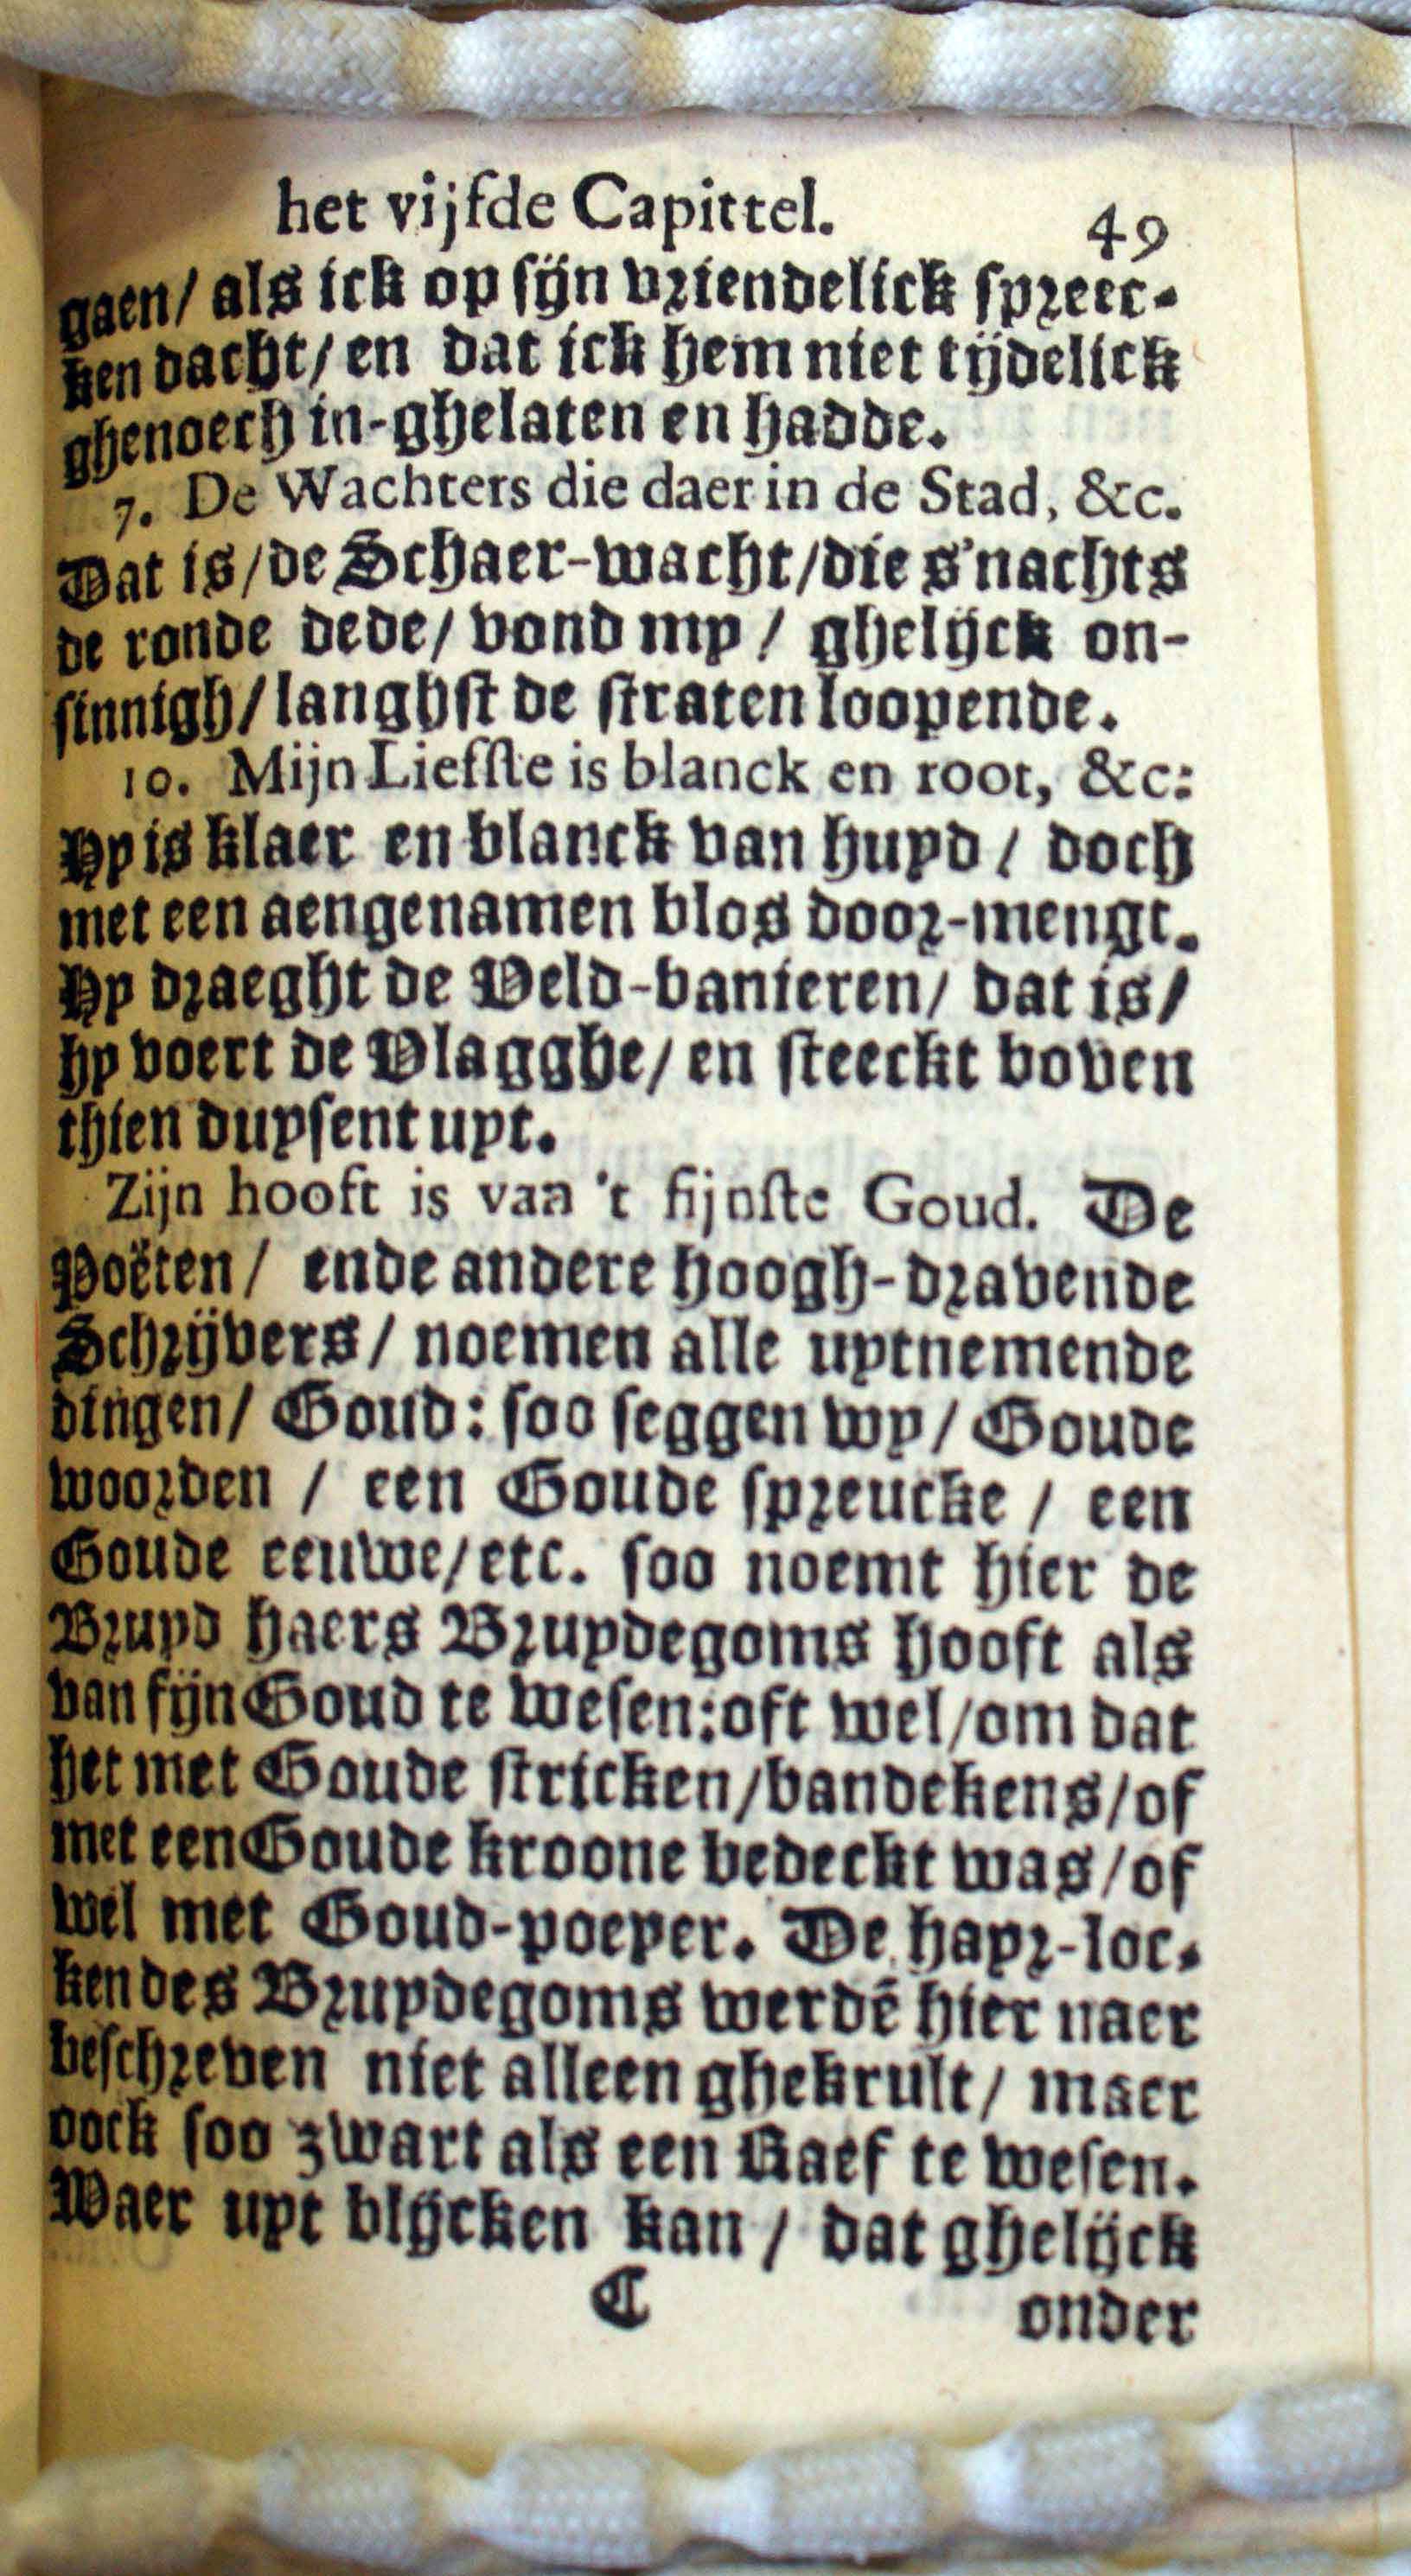 het vijfde Capittel. 49
gaen/ als ick op sijn vriendelick spreec-
ken dacht/ en dat ick hem niet tijdelick
ghenoech in-ghelaten en hadde.
7. De Wachters die daer in de Stad, &c.
Dat is/de Schaer-wacht/die s'nachts
de ronde dede/ vond my / ghelijck on-
sinnigh/langhst de straten loopende.
10. Mijn Liefste is blanck en root, &c:
Hy is klaer en blanck van huyd / doch
met een aengenamen blos door-mengt.
Hy draeght de Veld-banieren/ dat is/
hy voert de Vlagghe/ en steeckt boven
thien duysent uyt.
Zijn hooft is van 't fijnste Goud. De
Poëten/ ende andere hoogh-dravende
Schrijvers/ noemen alle uytnemende
dingen/ Goud: soo seggen wy/ Goude
woorden / een Goude spreucke / een
Goude eeuwe/etc. soo noemt hier de
Bruyd haers Bruydegoms hooft als
van fijn Goud te wesen:oft wel/om dat
het met Goude stricken/bandekens/of
met een Goude kroone bedeckt was/of
wel met Goud-poeyer. De hayr-loc-
ken des Bruydegoms werdē hier naer
beschreven niet alleen ghekrult/ maer
oock soo zwart als een Raef te wesen.
Waer uyt blijcken kan / dat ghelijck
C onder